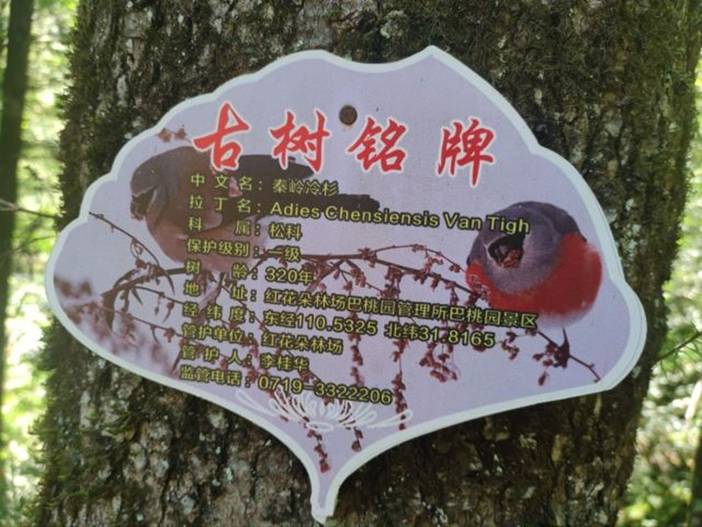 古树铭牌
中文名：秦岭冷杉
拉丁名：Adies Chensiensis Van Tigh
科属：松科
保护级别：一级
树龄：320年
地址：红花朵林场巴桃园管理所巴桃园景区
经纬度：东经110.5325 北纬31.8165
管护单位：红花朵林场
管护人：李桂华
监管电话：0719-3322206